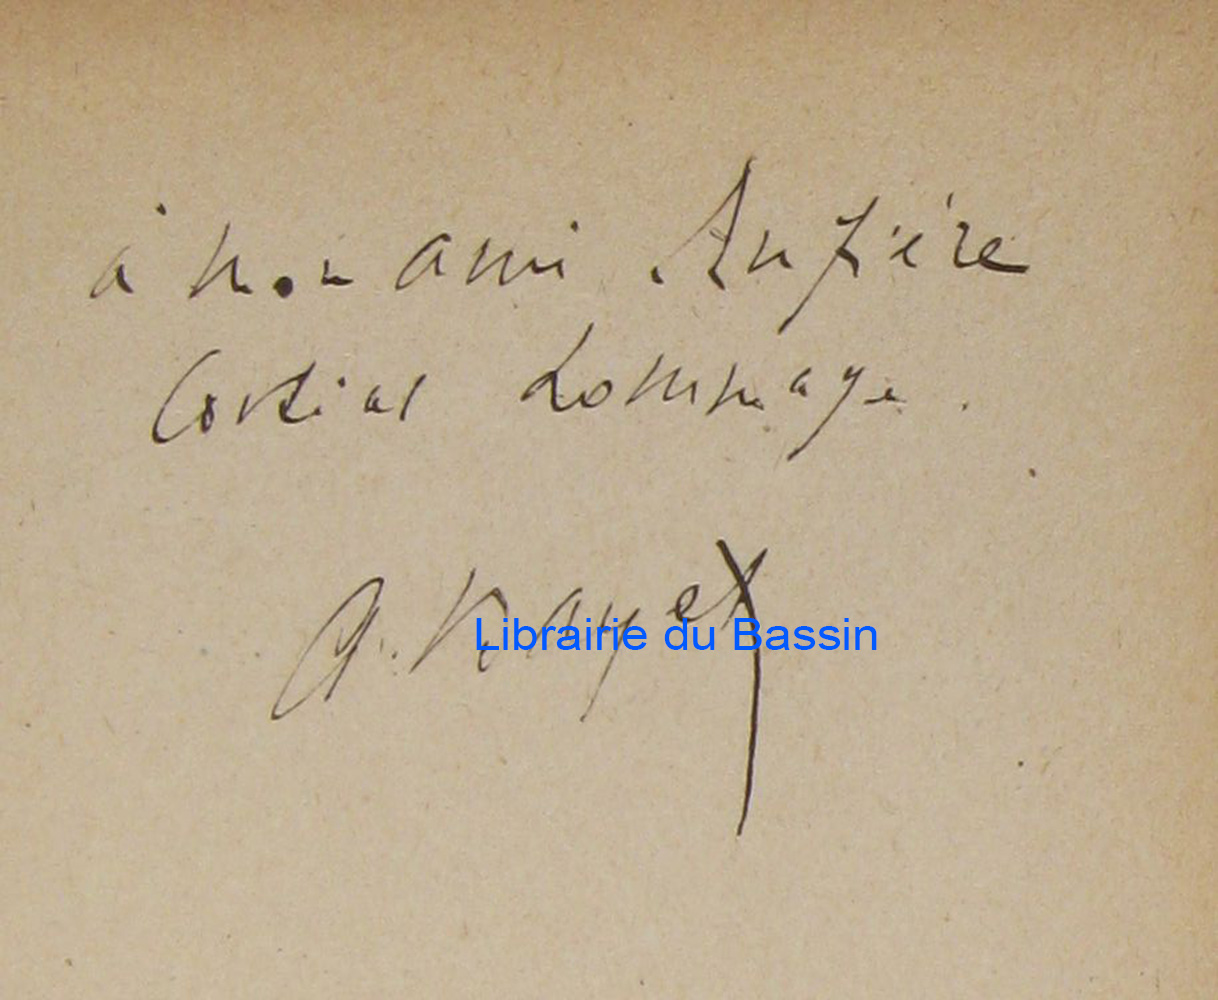 à mon ami Anfière
Cordial hommage.
A. Nayet
Librairie du Bassin